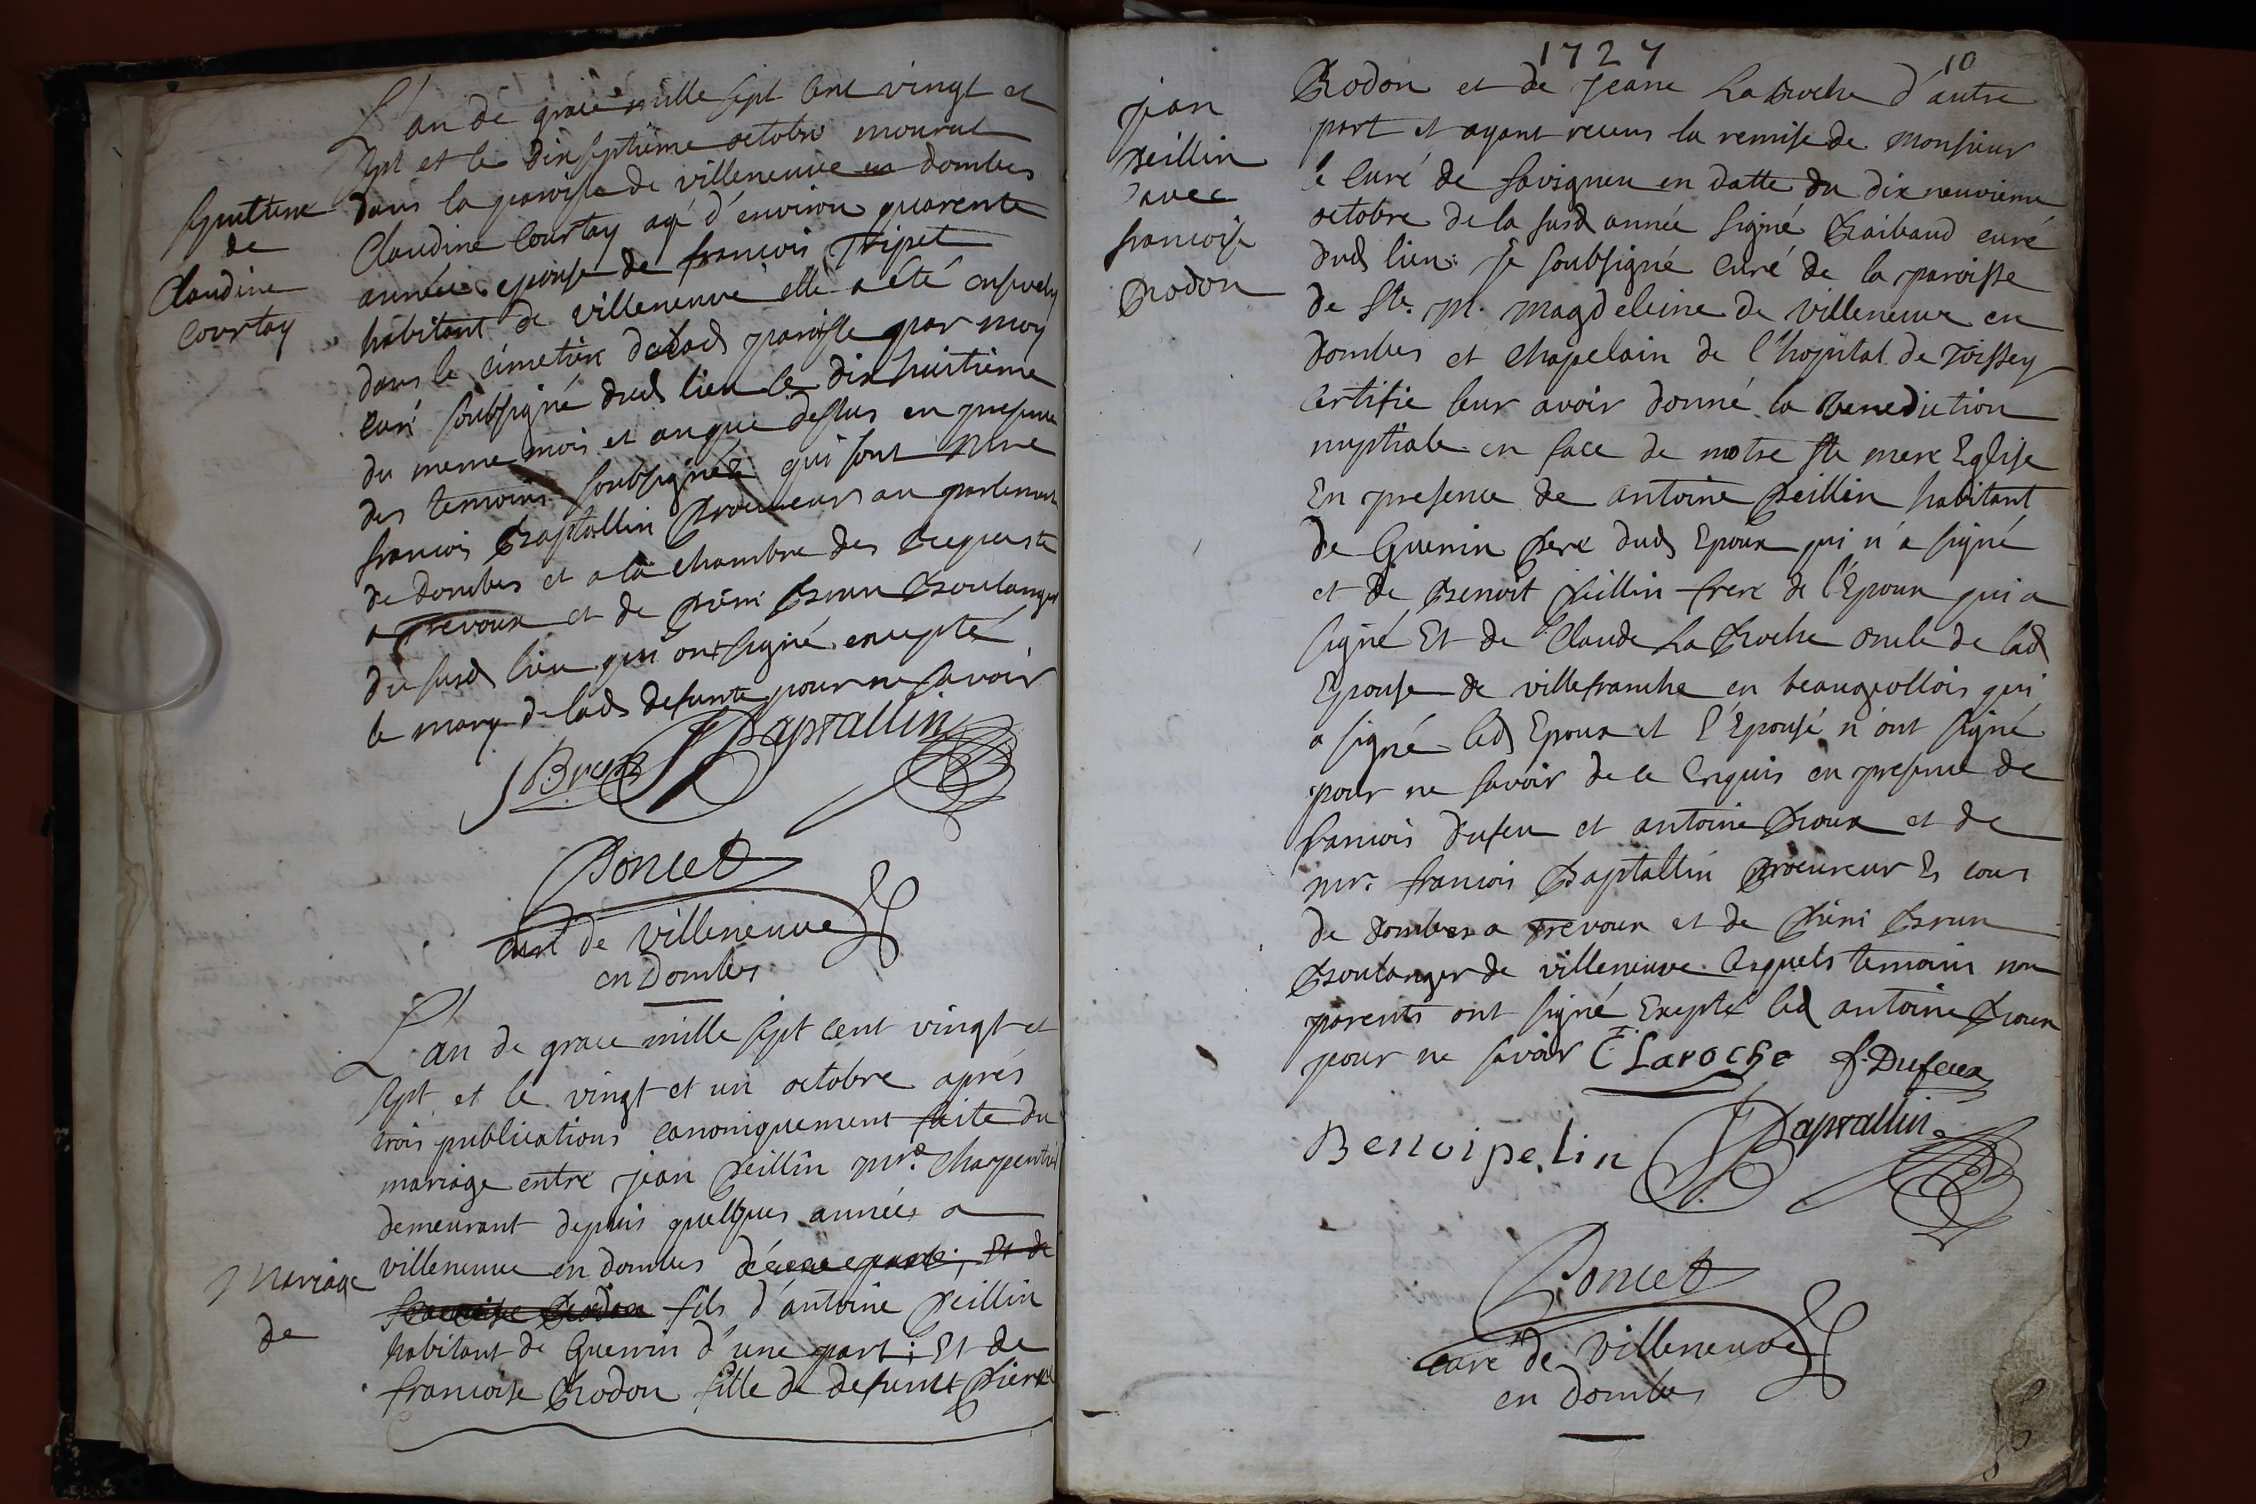 L'an de grace mille sept cent vingt et
sept et le dixseptieme octobre mourut
dans la paroisse de villeneuve en dombes
Claudine Courtay agé d'environ quarente
années epouse de françois Tripet
habitant de villeneuve elle a été ensevely
dans le cimetiere de lad paroisse par moy
curé soubsigné dud lieu le dix huitieme
du meme mois et an que dessus en presence
des temoins soubsignés qui sont Mre
françois Baptallin Procureur au parlement
de dombes et a la chambre des Requeste
a trevoux et de Brun Boulanger
du susd lieu qui ont signé excepté
le mary de lad defunte pour ne savoir
Sepulture
de
Claudine
Courtay
Brun Baptallin
Poncet
curé de villeneuve
en Dombes
L'an de grace mille sept cent vingt et
sept et le vingt et un octobre aprés
trois publications canoniquement faite du
mariage entre jean Peillin mre charpentier
demeurant depuis quelques années a
villeneuve en dombes d'une part, Et de
francoise Rodon fils d'antoine Peillin
habitant de Guerrin d'une part; Et de
francoise Rodon fille de defunct Pierre
Mariage
de
1727
10
jean
Peillin
avec
francoise
Rodon
Rodon et de jeane La Roche d'autre
part et ayant receus la remise de monsieur
le curé de savigneu en datte du dix neuvieme
octobre de la susd année signé Raibaud curé
dud lieu: je soubsigné curé de la paroisse
de Ste. M. Magdeleine de villeneuve en
dombes et chapelain de l'hopital de Toissey
certifie leur avoir donné la Benediction
nuptiale en face de notre Ste mere Eglise
En presence de antoine Peillin habitant
de Guerrin Pere dud Epoux qui n'a signé
et de Benoit Peillin frere de l'Epoux qui a
signé Et de Claude La Roche oncle de lad
Epouse de villefranche en beaugeollois qui
a signé led Epoux et l'Epouse n'ont signé
pour ne savoir de ce Enquis en presence de
francois dufeu et antoine Proux et de
mr. francois Baptallin Procureur Es cour
de dombes a trevoux et de Brun
Boulanger de villeneuve lesquels temoins non
parents ont signé Excepté led antoine Proux
pour ne savoir C Laroche f. Dufeux
Benoi pelin Baptallin
Poncet
curé de villeneuve
en dombes